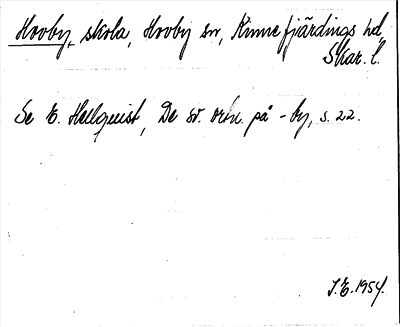 Hovby, skola, Hovby sn, Kinnefjärdings hd,
Skar. l.
Se E. Hellquist, De sv. ortn. på -by, s. 22.
J.E. 1954.